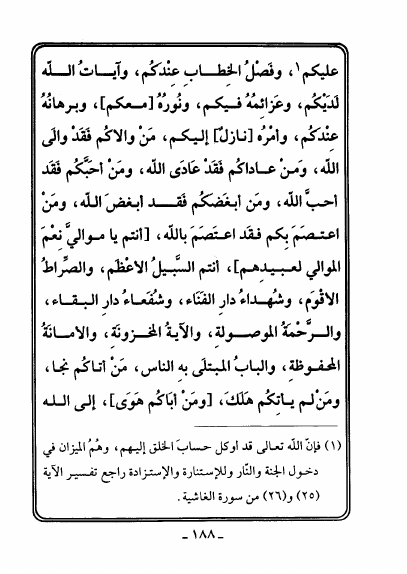 عليكم¹، وفَصْلُ الخطاب عِنْدَكُم، وآيات الله
لَدَيْكُم، وعَزائِمُهُ فيكم، ونُورُهُ [معكم]، وبرهانُهُ
عِنْدَكم، وأمْرُه [نازلٌ] إليكم، مَنْ والاكُم فَقَدْ والَى
الله، ومَنْ عاداكُم فَقَدْ عَادَى الله، ومَنْ أحَبَّكُم فَقَد
أحبَّ الله، ومَن أبغَضَكُم فَقَد أبغضَ الله، ومَنْ
اعتصَمَ بِكم فقد اعتصَمَ بالله، [أنتم يا مواليَّ نِعْمَ
الموالي لعبيدهم]، أنتم السَّبيلُ الأعْظَم، والصِّراطُ
الأقْوَم، وشُهداءُ دارِ الفَنَاء، وشُفَعاءُ دارِ البقاء،
والرَّحْمَةُ الموصولة، والآيةُ المخزونَة، والأمانَةُ
المحفوظة، والبابُ المبتلَى بِه الناس، مَنْ أتاكُم نجا،
ومَنْ لم يأتِكُم هَلَكَ، [ومَنْ أبَاكُم هَوَى]، إلى الله
(١) فإنّ الله تعالى قد أوكل حسابَ الخلق إليهم، وهُمُ الميزان في
دخول الجنة والنَّار وللإستنارة والإستزادة راجع تفسير الآية
(٢٥) و(٢٦) من سورة الغاشية.
ـ ١٨٨ ـ